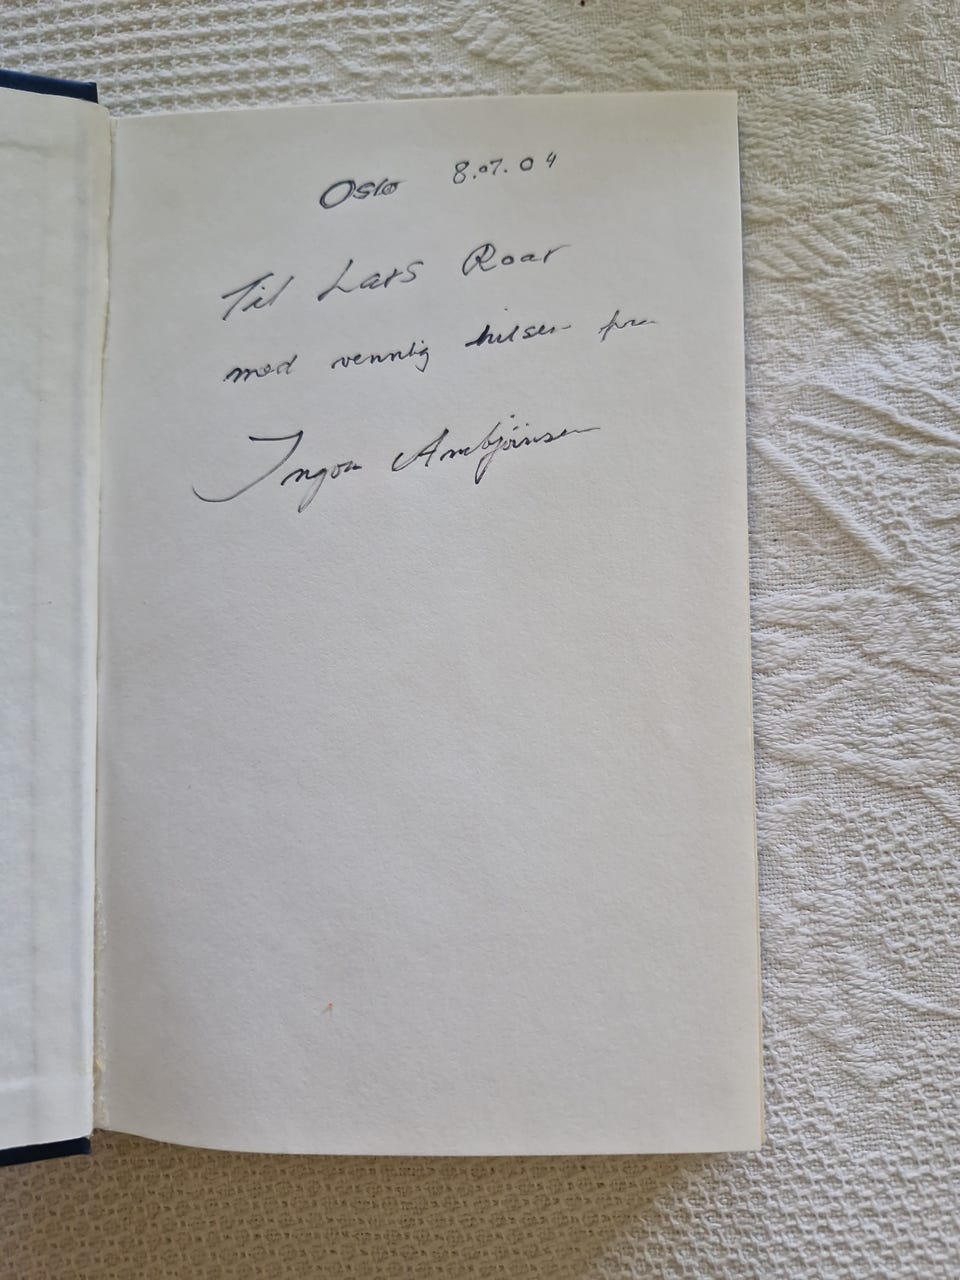 Oslo 8.07.04
Til Lars Roar
med vennlig hilsen fra
Ingvar Ambjørnsen